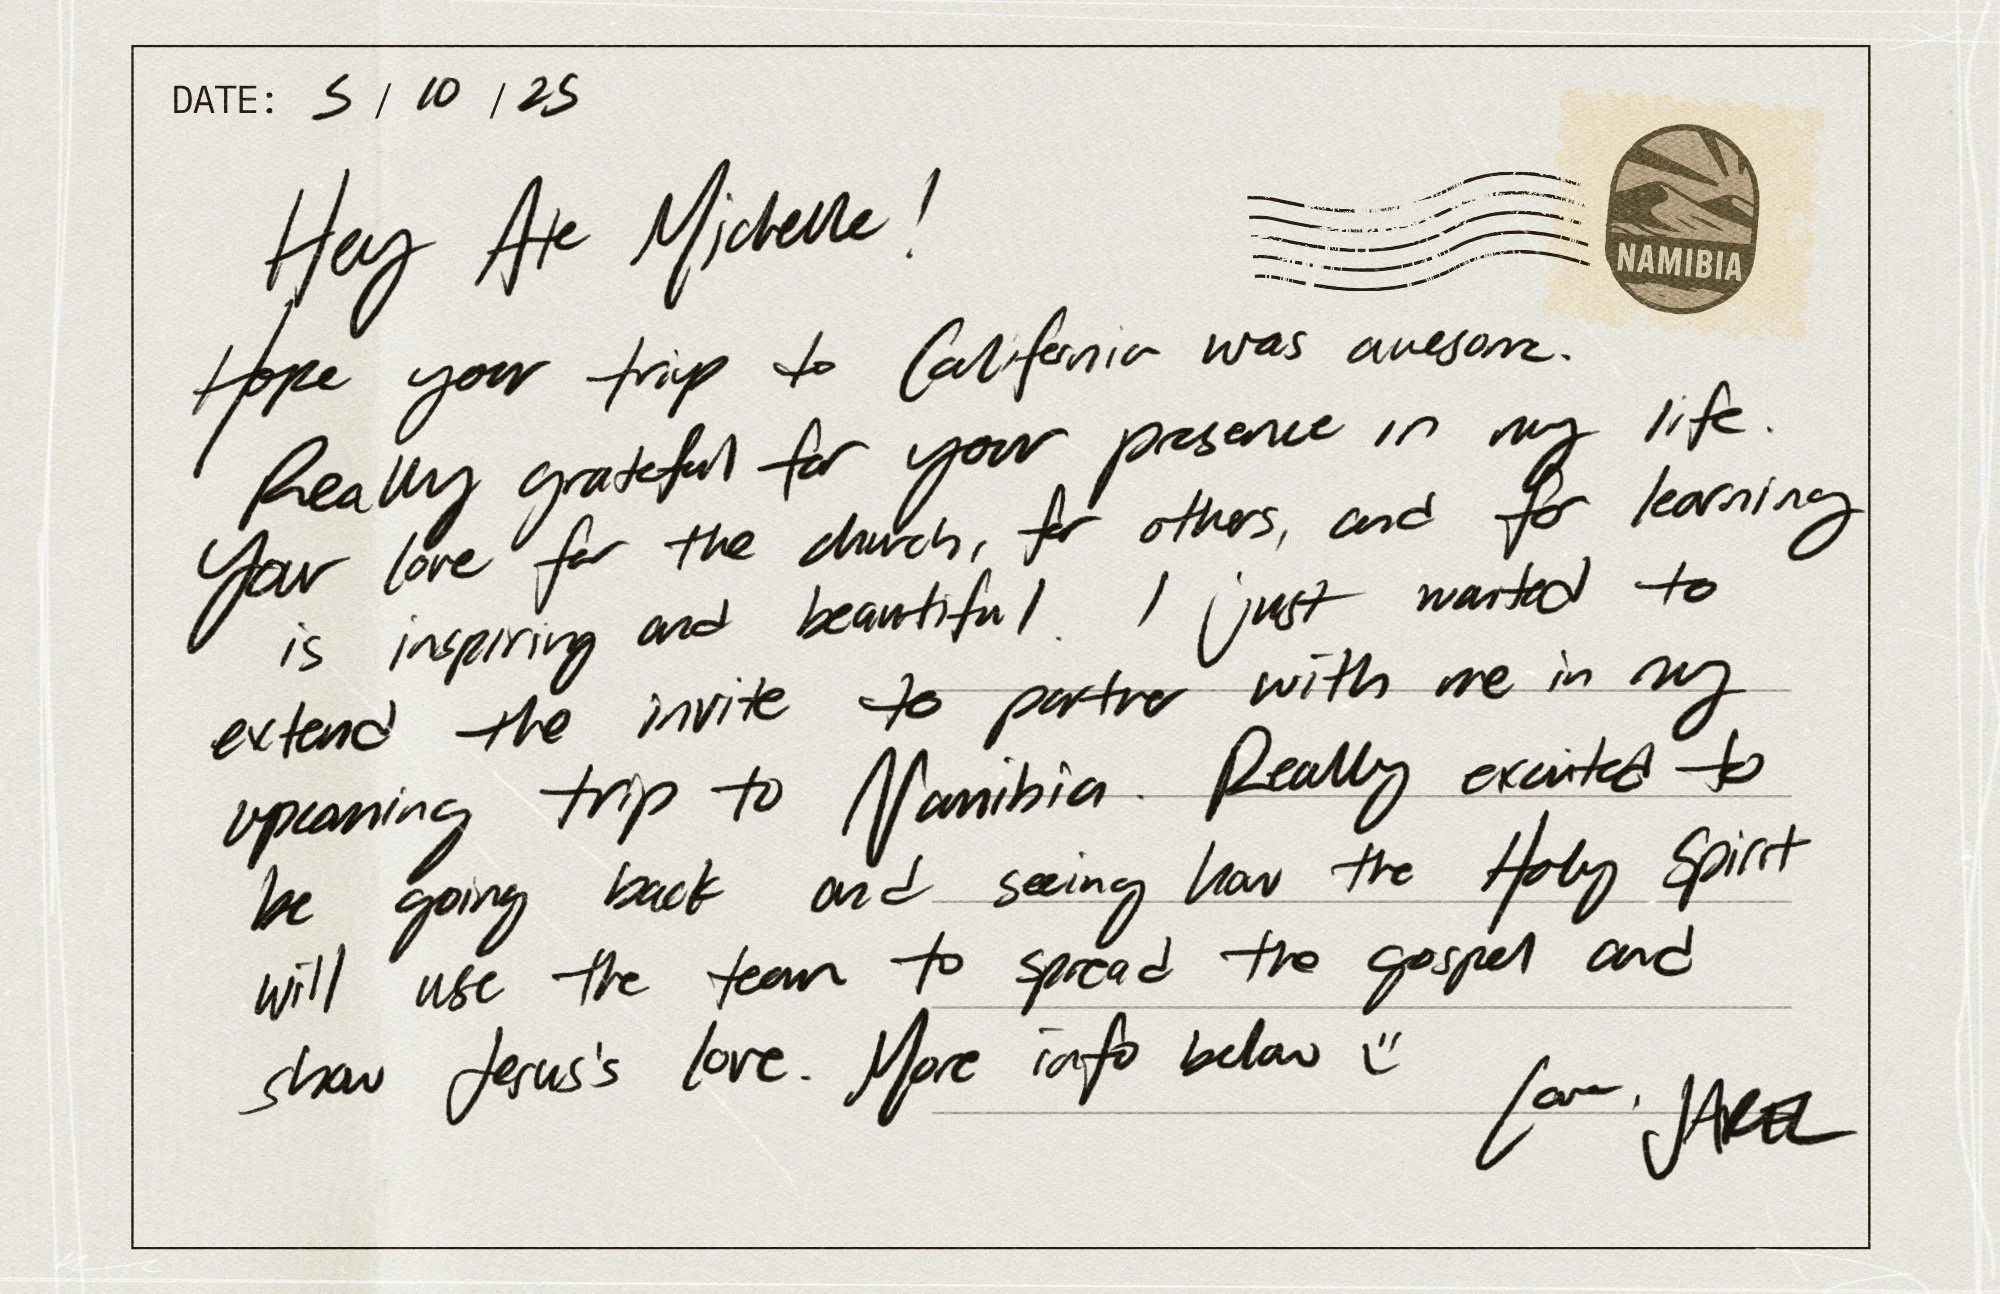 DATE: 5 / 10 / 25
NAMIBIA
Hey Ate Michelle!
Hope your trip to California was awesome.
Really grateful for your presence in my life.
Your love for the church, for others, and for learning
is inspiring and beautiful. I just wanted to
extend the invite to partner with me in my
upcoming trip to Namibia. Really excited to
be going back and seeing how the Holy Spirit
will use the team to spread the gospel and
show Jesus's love. More info below :)
Love, JAREL